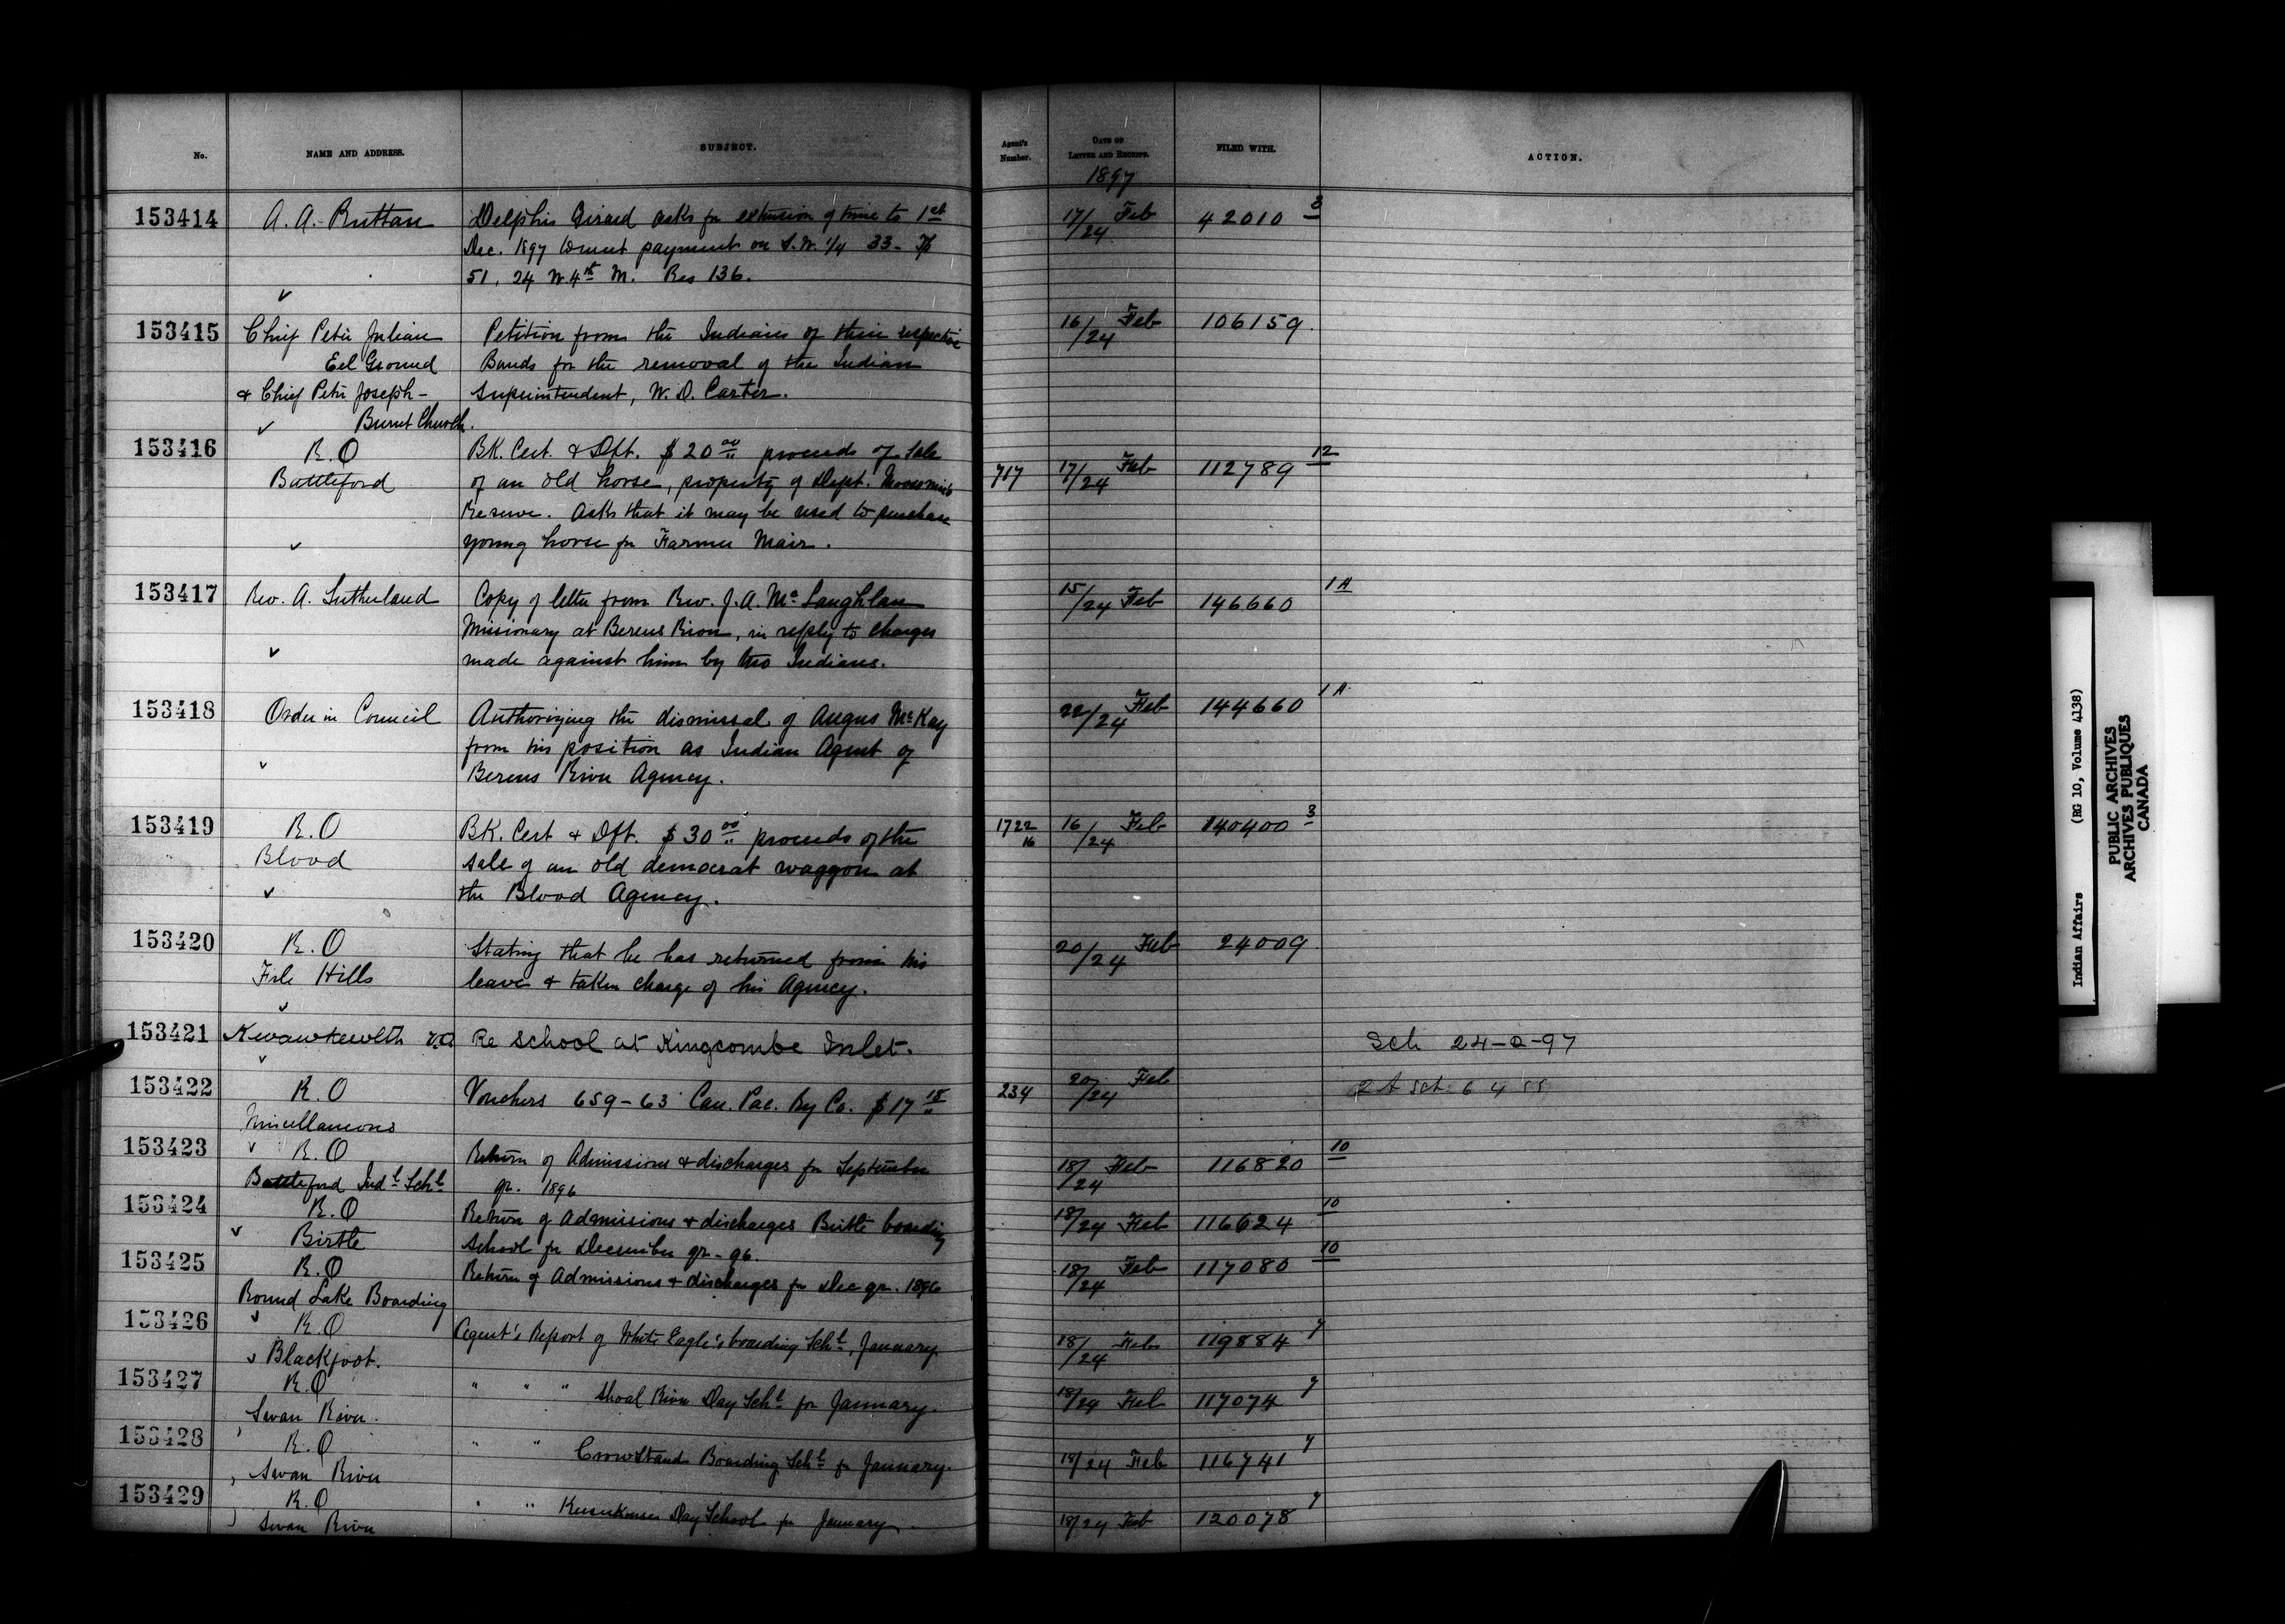 No. NAME AND ADDRESS. SUBJECT. Agent's Number. DATE OF LETTER AND RECEIPT. FILED WITH. ACTION.
1897
153414 A. A. Ruttan Delphis Girard asks for extension of time to 1st 17/24 Feb 42010 3
Dec. 1897 to meet payment on S.W. 1/4 33- Tp
51, 24 W 4th M. Res 136.
153415 Chief Peter Julian Petition from the Indians of their respective 16/24 Feb 106159.
Eel Ground Bands for the removal of the Indian
& Chief Peter Joseph- Superintendent, W. D. Carter.
Burnt Church.
153416 R.O BK. Cert. & Dft. $20 00 proceeds of sale 112789 12
Battleford of an old horse, property of Dept. Moosomin's 717 17/24 Feb
Reserve. Asks that it may be used to purchase
young horse for Farmer Mair.
153417 Rev. A. Sutherland Copy of letter from Rev. J. A. McLaughlan 15/24 Feb 146660 1A
Missionary at Berens River, in reply to charges
made against him by two Indians.
153418 Order in Council Authorizing the dismissal of Angus McKay 22/24 Feb 144660 1A
from his position as Indian Agent of
Berens River Agency.
153419 R.O BK. Cert & Dft. $30 00 proceeds of the 1722 16 16/24 Feb 140400 3
Blood sale of an old democrat waggon at
the Blood Agency.
153420 R.O Stating that he has returned from his 20/24 Feb 24009
File Hills leave & taken charge of his Agency.
153421 Kwawkewlth Re School at Kingcombe Inlet. Sch 24-2-97
153422 R.O Vouchers 659-63 Can. Pac. Ry Co. $17 15 234 20/24 Feb
Miscellaneous
153423 R.O Return of Admissions & discharges for September 18/24 Feb 116820 10
Battleford Ind'l Sch'l qr. 1896
153424 R.O Return of Admissions & discharges Birtle boarding 18/24 Feb 116624 10
Birtle School for December qr-96.
153425 R.O Return of Admissions & discharges for Dec qr. 1896 18/24 Feb 117080 10
Round Lake Boarding
153426 R.O Agent's Report of White Eagle's boarding Sch'l, January. 18/24 Feb 119884 7
Blackfoot.
153427 R.O " " " Shoal River Day Sch'l for January. 18/24 Feb 117074 7
Swan River.
153428 R.O " " Crowstand Boarding Sch'l for January. 18/24 Feb 116741 7
Swan River
153429 R.O " " Day School for January. 18/24 Feb 120078 7
Swan River
Indian Affairs (RG 10, Volume 4138)
PUBLIC ARCHIVES
ARCHIVES PUBLIQUES
CANADA